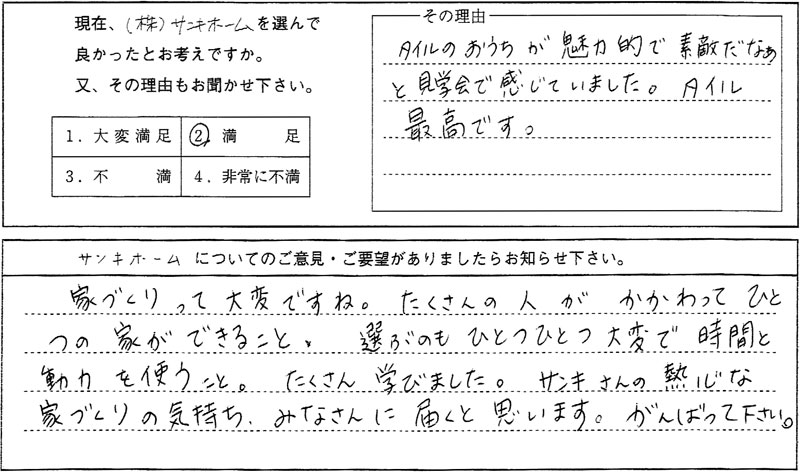 現在、(株)サンキホームを選んで
良かったとお考えですか。
又、その理由もお聞かせ下さい。
1. 大変満足 ② 満足
3. 不満 4. 非常に不満
その理由
タイルのおうちが魅力的で素敵だなぁ
と見学会で感じていました。タイル
最高です。
サンキホームについてのご意見・ご要望がありましたらお知らせ下さい。
家づくりって大変ですね。たくさんの人がかかわってひと
つの家ができること、選ぶのもひとつひとつ大変で時間と
動力を使うこと。たくさん学びました。サンキさんの熱心な
家づくりの気持ち、みなさんに届くと思います。がんばって下さい。